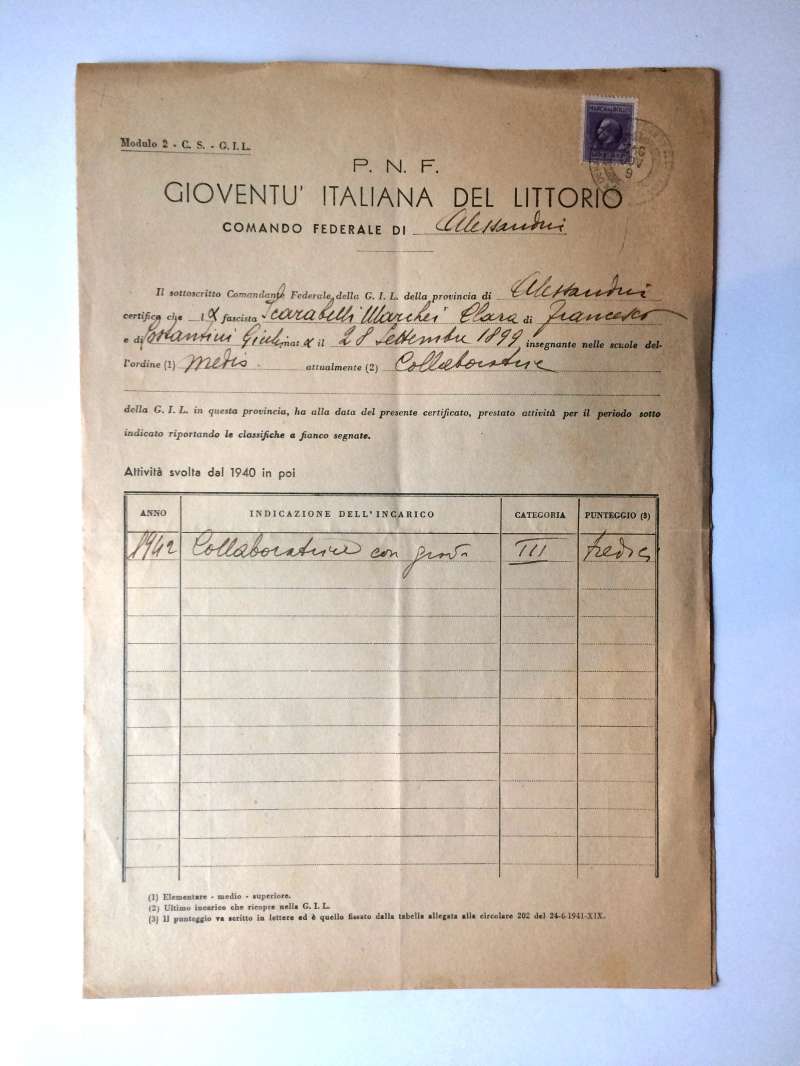 MARCA DA BOLLO
Modulo 2 - C. S. - G. I. L.
P. N. F.
GIOVENTU' ITALIANA DEL LITTORIO
COMANDO FEDERALE DI Alessandria
Il sottoscritto Comandante Federale della G. I. L. della provincia di Alessandria
certifica che la fascista Scarabelli Marchei Clara di Francesco
e di Costantini Giulia nata il 28 Settembre 1899 insegnante nelle scuole del-
l'ordine (1) medio attualmente (2) Collaboratrice
della G. I. L. in questa provincia, ha alla data del presente certificato, prestato attività per il periodo sotto
indicato riportando le classifiche a fianco segnate.
Attività svolta dal 1940 in poi
ANNO INDICAZIONE DELL'INCARICO CATEGORIA PUNTEGGIO (3)
1942 Collaboratrice con III tredici
(1) Elementare - medio - superiore.
(2) Ultimo incarico che ricopre nella G. I. L.
(3) Il punteggio va scritto in lettere ed è quello fissato dalla tabella allegata alla circolare 202 del 24-6-1941-XIX.